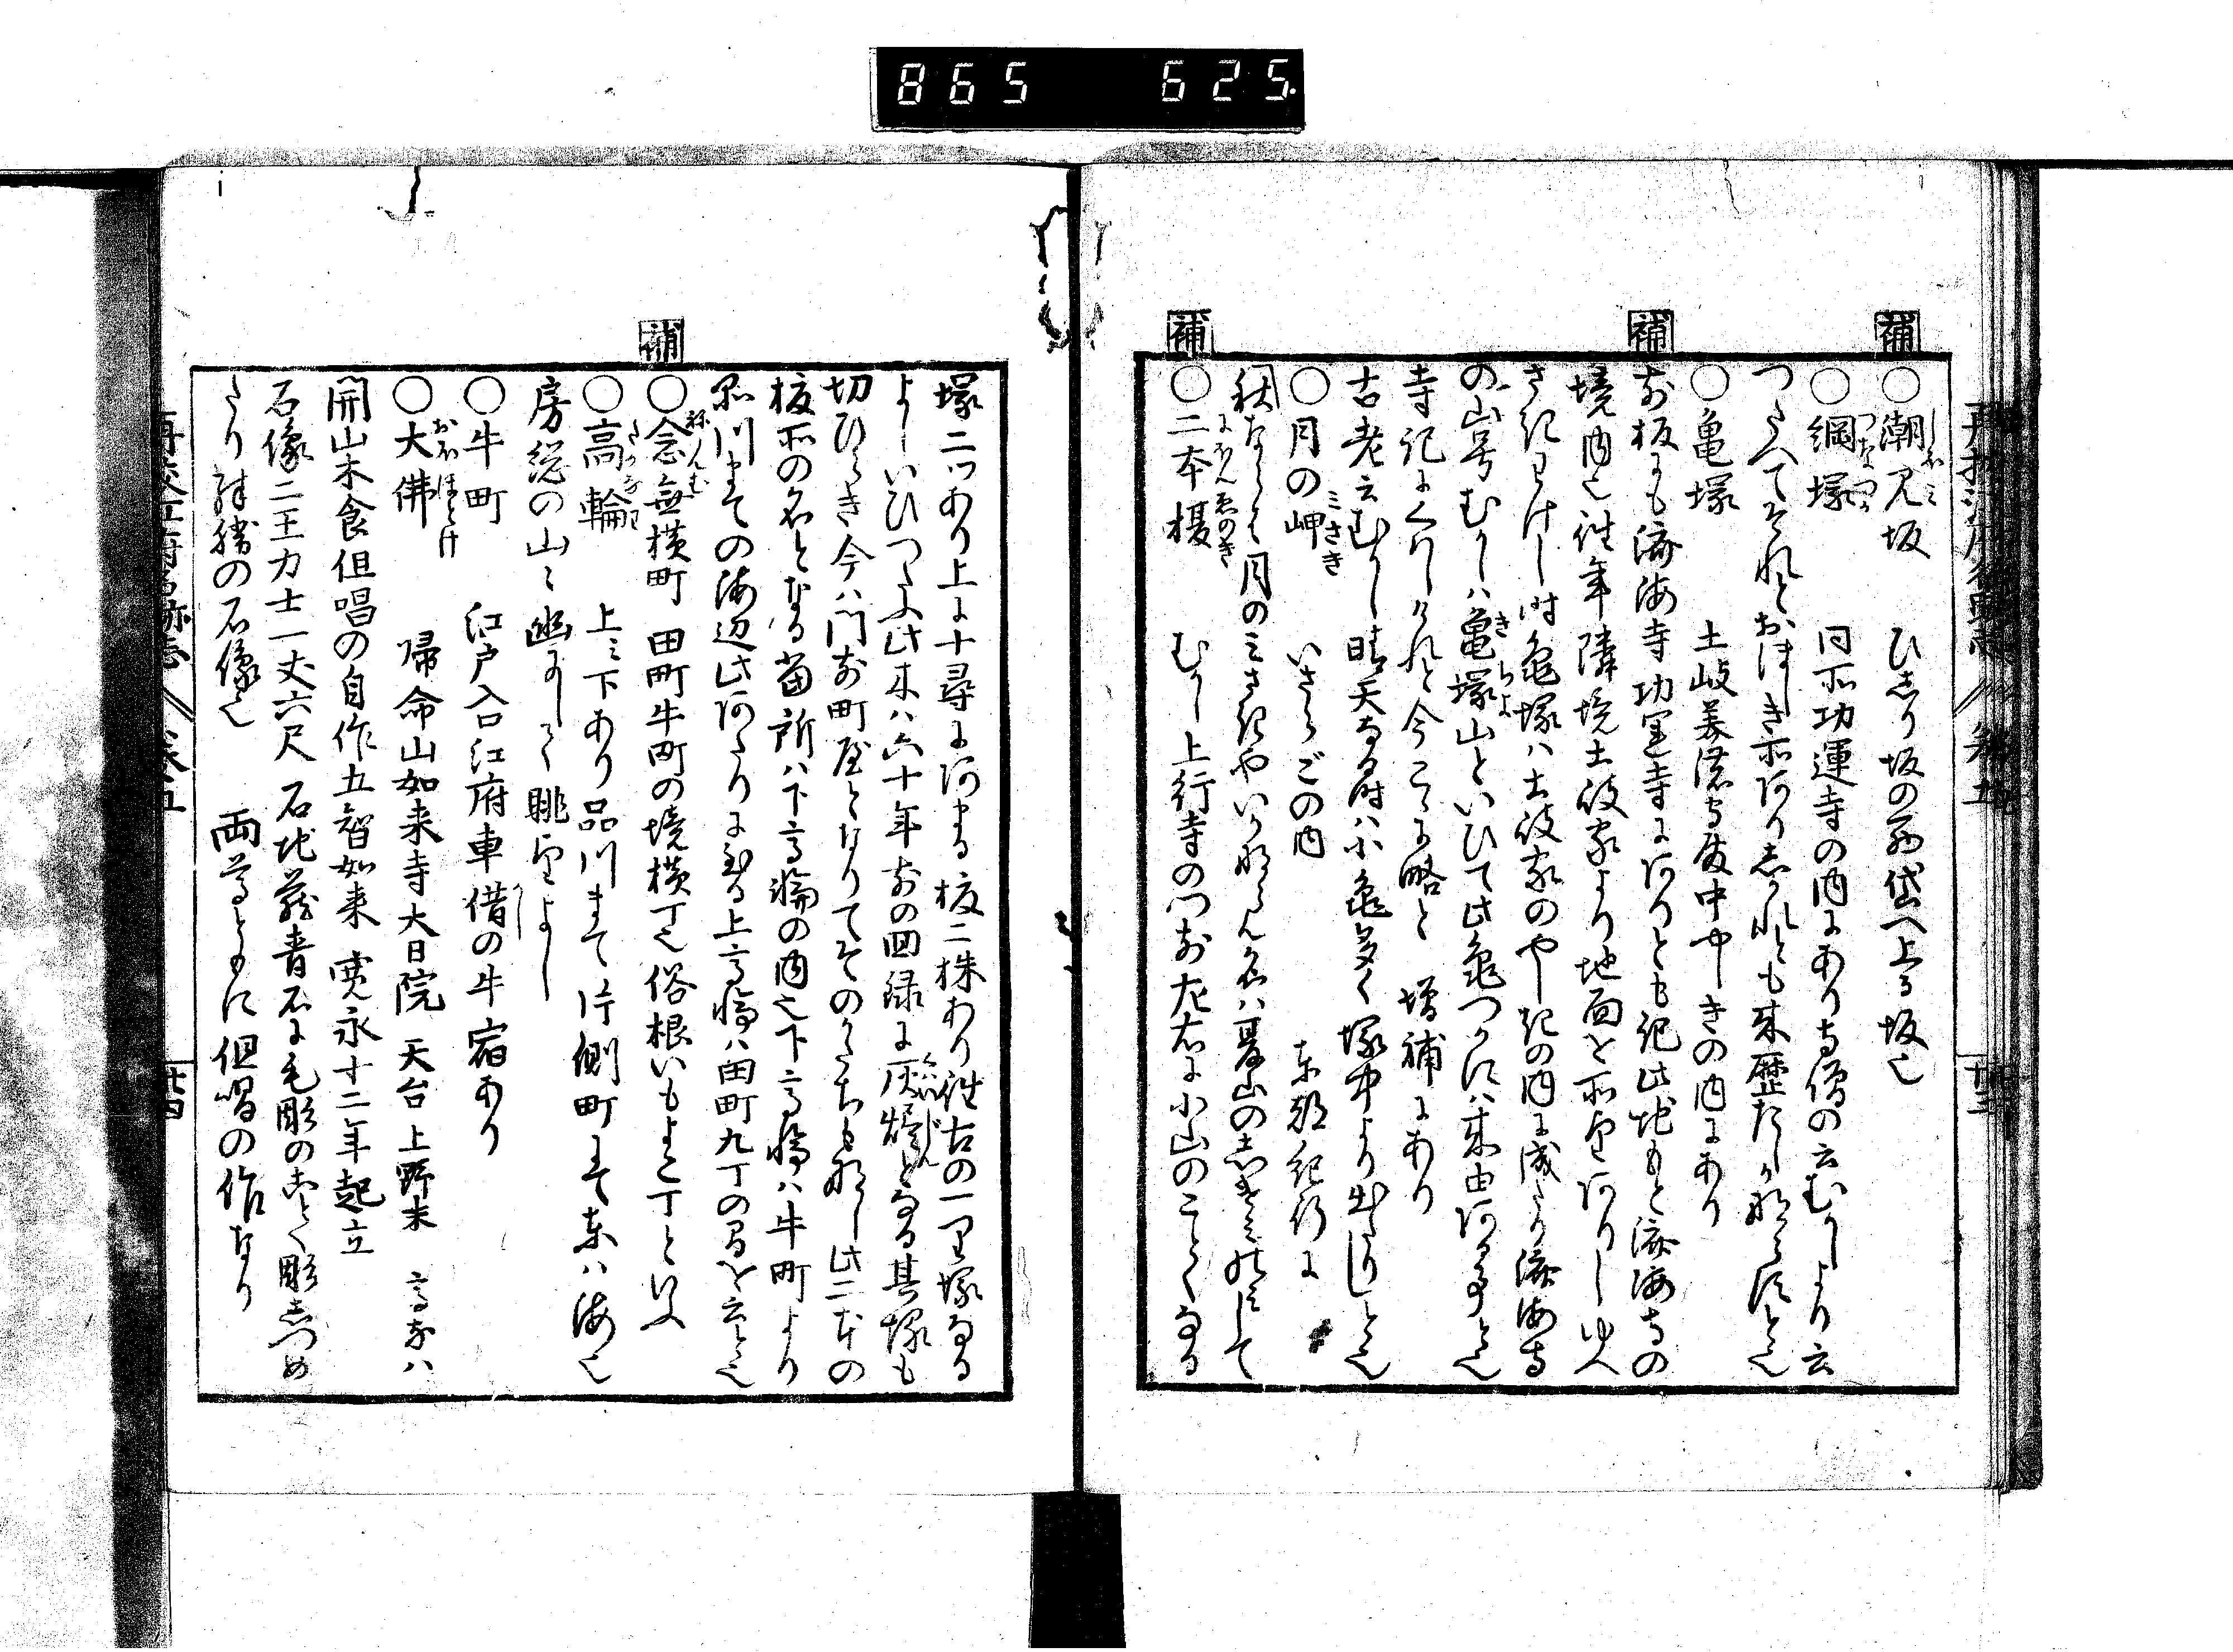 865 625
補
○潮見坂 ひじり坂の南岱へ上る坂也
○綱塚 同所功運寺の内にあり寺僧の云むかしより云
つたへてそれとおほしき所ありしかれとも来歴たしかならすと也
○亀塚 土岐美濃守殿中やしきの内にあり
補
前板にも済海寺功運寺にありとも記此地もと済海寺の
境内也往年隣境土岐家より地面を所望ありしゆへ
さきわけし時亀塚ハ土岐家のやしきの内に成たり済海寺
の山号むかしハ亀塚山といひて此亀つかにハ来由ある事と也
寺記にくハしけれと今こゝに略と 増補にあり
古老云むかし晴天なる時ハ小亀多く塚中より出たりしと也
○月の岬 いさらごの内 東都紀行に
秋ならは月のみさきやいかならん名は夏山の
補
○二本榎 むかし上行寺の門前左右に小山のことくなる
塚二つあり上に十尋にあまる榎二株あり往古の一里塚なる
よしいひつたふ此木ハ六十年前の回録に灰燼となる其塚も
切ひらき今ハ門前町屋となりてそのかたちもなし此二本の
榎所の名となる当所ハ下高輪の内也下高輪ハ牛町より
品川まての海辺此あたりに至る上高輪ハ田町九丁の間を云と也
補
○念無横町 田町牛町の境横丁也俗根いもよこ丁といふ
○高輪 上ミ下あり品川まて片側町にて東ハ海也
房総の山々幽にして眺望よし
○牛町 江戸入口江府車借の牛宿あり
○大佛 帰命山如来寺大日院 天台 上野末 高なハ
開山木食但唱の自作五智如来 寛永十二年起立
石像二王力士一丈六尺 石地蔵青石に毛彫のことく彫しつめ
たり殊勝の石像也 両尊ともに但唱の作なり
廿四